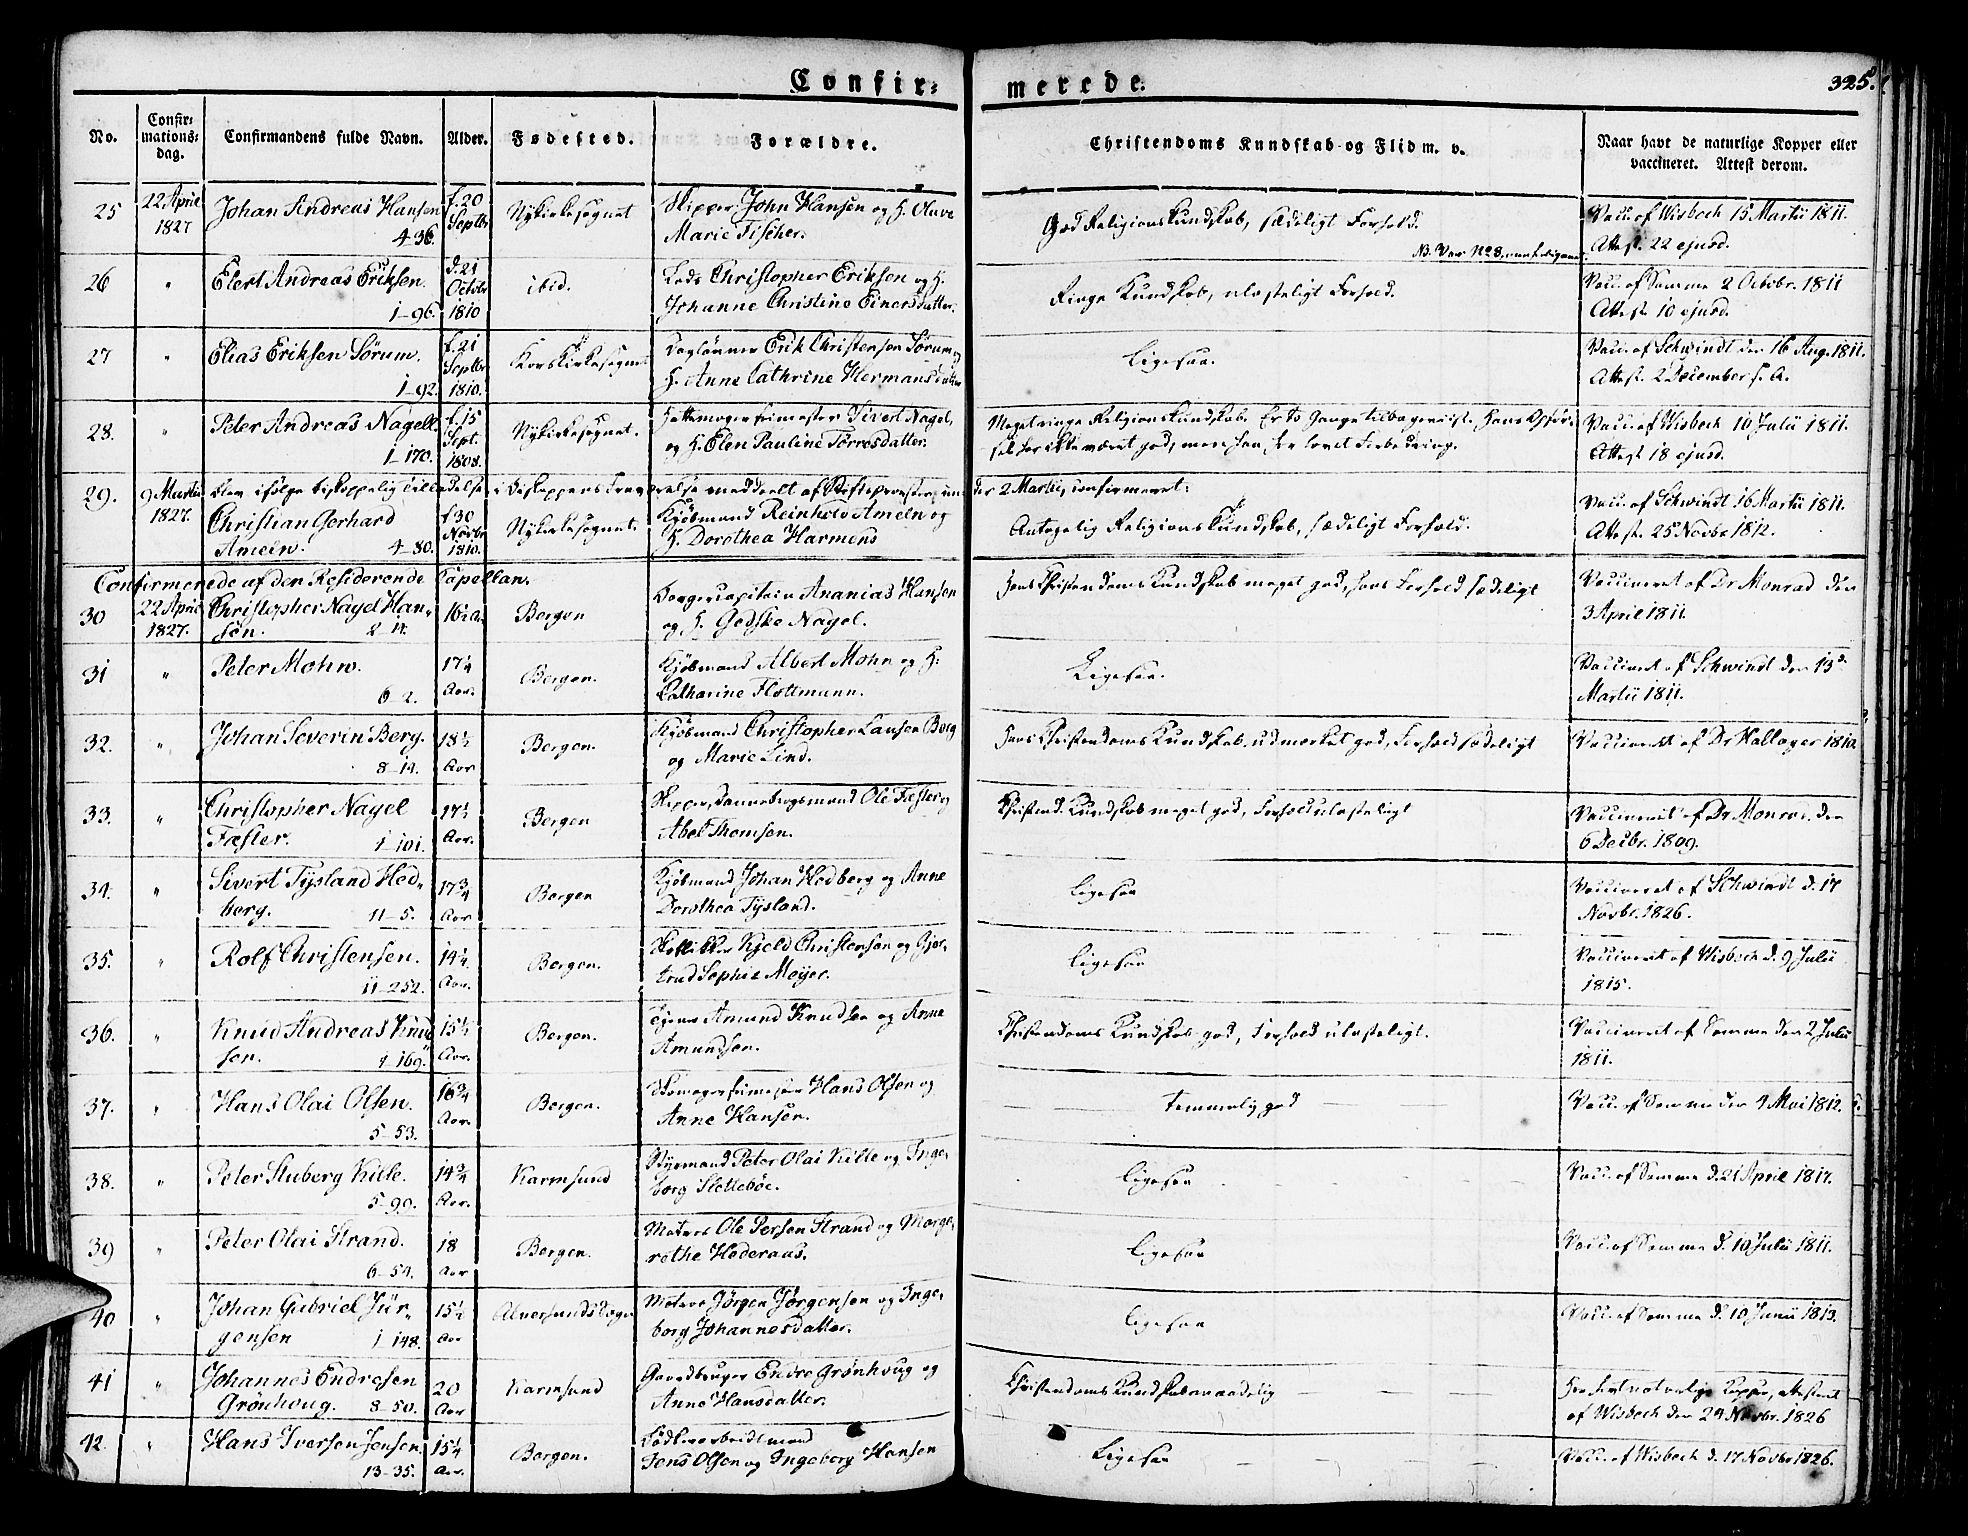 Confir=
merede.
325.
No.
Confir=
mations=
dag.
Confirmandens fulde Navn.
Alder.
Fødested.
Forældre.
Christendoms Kundskab og Flid m. v.
Naar havt de naturlige Kopper eller
vaccineret. Attest derom.
25
22 April
1827
Johan Andreas Hansen
4-36.
f. 20
Septbr
Nykirkesognet
Skipper John Hansen og H. Oluve
Marie Fischer.
God Religions Kundskab, sædeligt Forhold.
Vacc. af Wisbech 15 Martii 1811.
Attest. 22 ejusd.
26
"
Elert Andreas Eriksen.
1-96.
d. 21
Octobr
1810
ibid.
Lods Christopher Eriksen og H.
Johanne Christine Einersdatter.
NB. Var No 8,
Ringe Kundskab, ulasteligt Forhold.
Vacc. af Samme 2 Octobr. 1811
Attest. 10 ejusd.
27
"
Elias Eriksen Sørum.
1-92.
f. 21
Septbr
1810.
Korskirkesognet
Daglønner Erik Christensen Sørum og
H. Anne Cathrine Hermansdatter
Ligesaa.
Vacc. af Schwindt den 16 Aug. 1811.
Attest. 2 December s. A.
28.
"
Peter Andreas Nagel.
1-170.
f. 15
Sept.
1808.
Nykirkesognet.
Hattemagersvinester Sivert Nagel,
og H. Elen Pauline Torresdatter.
Meget ringe Religions Kundskab. Er to Gange tilbageviist. Hans Opfør=
sel har ikke været god, men han har lovet Forbedring.
Vacc. af Wisbech 10 Julii 1811.
Attest 18 ejusd.
29.
9 Martii
1827.
blev ifølge biskoppelig Tilladelse i Biskoppens Fraværelse meddeelt af Stiftsprovsten under 2 Martii, confirmeret:
Christian Gerhard
Ameln.
4-80.
f 30
Novbr
1810.
Nykirkesognet.
Kjøbmand Reinhold Ameln og
H. Dorothea Harmens
Antagelig Religions Kundskab, sædeligt Forhold.
Vacc. af Schwindt 16 Martii 1811.
Attest. 25 Novbr 1812.
Confirmerede af den Residerende Capellan.
30
22 April
1827.
Christopher Nagel Han=
sen.
2-14.
16½ A.
Bergen
Borgercapitain Ananias Hansen
og H. Gedske Nagel.
Hans Christendoms Kundskab meget god, hans Forhold sædeligt
Vaccineret af Dr Monrad den
3 April 1811.
31
"
Peter Mohn.
6-2.
17¼
Aar.
Bergen.
Kjøbmand Albert Mohn og H:
Catharine Flottmann.
Ligesaa.
Vaccineret af Schwindt den 13de
Martii 1811.
32.
"
Johan Severin Berg.
8-14.
18½
Aar
Bergen.
Kjøbmand Christopher Lausen Berg
og Marie Lind.
Hans Christendoms Kundskab udmerket god, Forhold sædeligt
Vaccineret af Dr Hallager 1810.
33.
"
Christopher Nagel
Fæster.
1-101.
17½
Aar.
Bergen
Skipper, Dannebrogsmand Ole Fæster og
Abel Thomsen.
Christend. Kundskab meget god, Forhold ulasteligt
Vaccineret af Dr Monrad den
6 Decbr. 1809.
34.
"
Sivert Tysland Hed=
berg.
11-5.
17¾
Aar
Bergen
Kjøbmand Johan Hedberg og Anne
Dorothea Tysland.
Ligesaa
Vaccineret af Schwindt d. 17
Novbr. 1826.
35.
"
Rolf Christensen.
11-252.
14¼
Aar.
Bergen.
Kjeld Christensen og Gjer=
trud Sophie Meyer.
Ligesaa
Vaccineret af Wisbech d. 9 Julii
1815.
36.
"
Knud Andreas Knud
sen.
4-169.
15½
Aar.
Bergen.
Amund Knudsen og Anne
Amundsen.
Christendoms Kundskab god, Forhold ulasteligt.
Vaccineret af Samme den 2 Julii
1811.
37.
"
Hans Olai Olsen.
5-53.
16¾
Aar.
Bergen.
Skomagersvinester Hans Olsen og
Anne Hansen.
temmelig god
Vacc. af Samme den 4 Mai 1812.
38.
"
Peter Stuberg Kitle.
5-90.
14¾
Aar.
Karmsund
Peter Olai Kitle og Inge=
borg Slettebøe.
Ligesaa
Vacc. af Samme d. 21 April 1817.
39
"
Peter Olai Strand.
6-54.
18
Aar
Bergen.
Matros Ole Persen Strand og Marge=
rethe Hederaas.
Ligesaa
Vacc. af Samme d. 10 Julii 1811.
40
"
Johan Gabriel Jür=
gensen
1-148.
15½
Aar
Matros Jørgen Jørgensen og Inge=
borg Johannesdatter.
Ligesaa
Vacc. af Samme d. 10 Junii 1813.
41
"
Johannes Endresen
Grønhoug.
8-50.
20
Aar
Karmsund
Gaardbruger Endre Grønhoug og
Anne Hansdatter.
Christendoms Kundskab maadelig
Har havt naturlige Kopper, attesteret
af Wisbech den 24 Novbr. 1826
42.
"
Hans Iversen Jensen.
13-35.
15¼
Aar.
Bergen.
Jens Olsen og Ingeborg Hansen
Ligesaa
Vacc. af Wisbech d. 17 Novbr 1826.